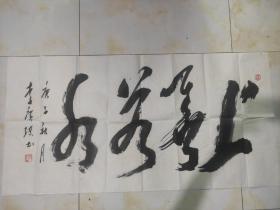 上善若水
庚子秋月